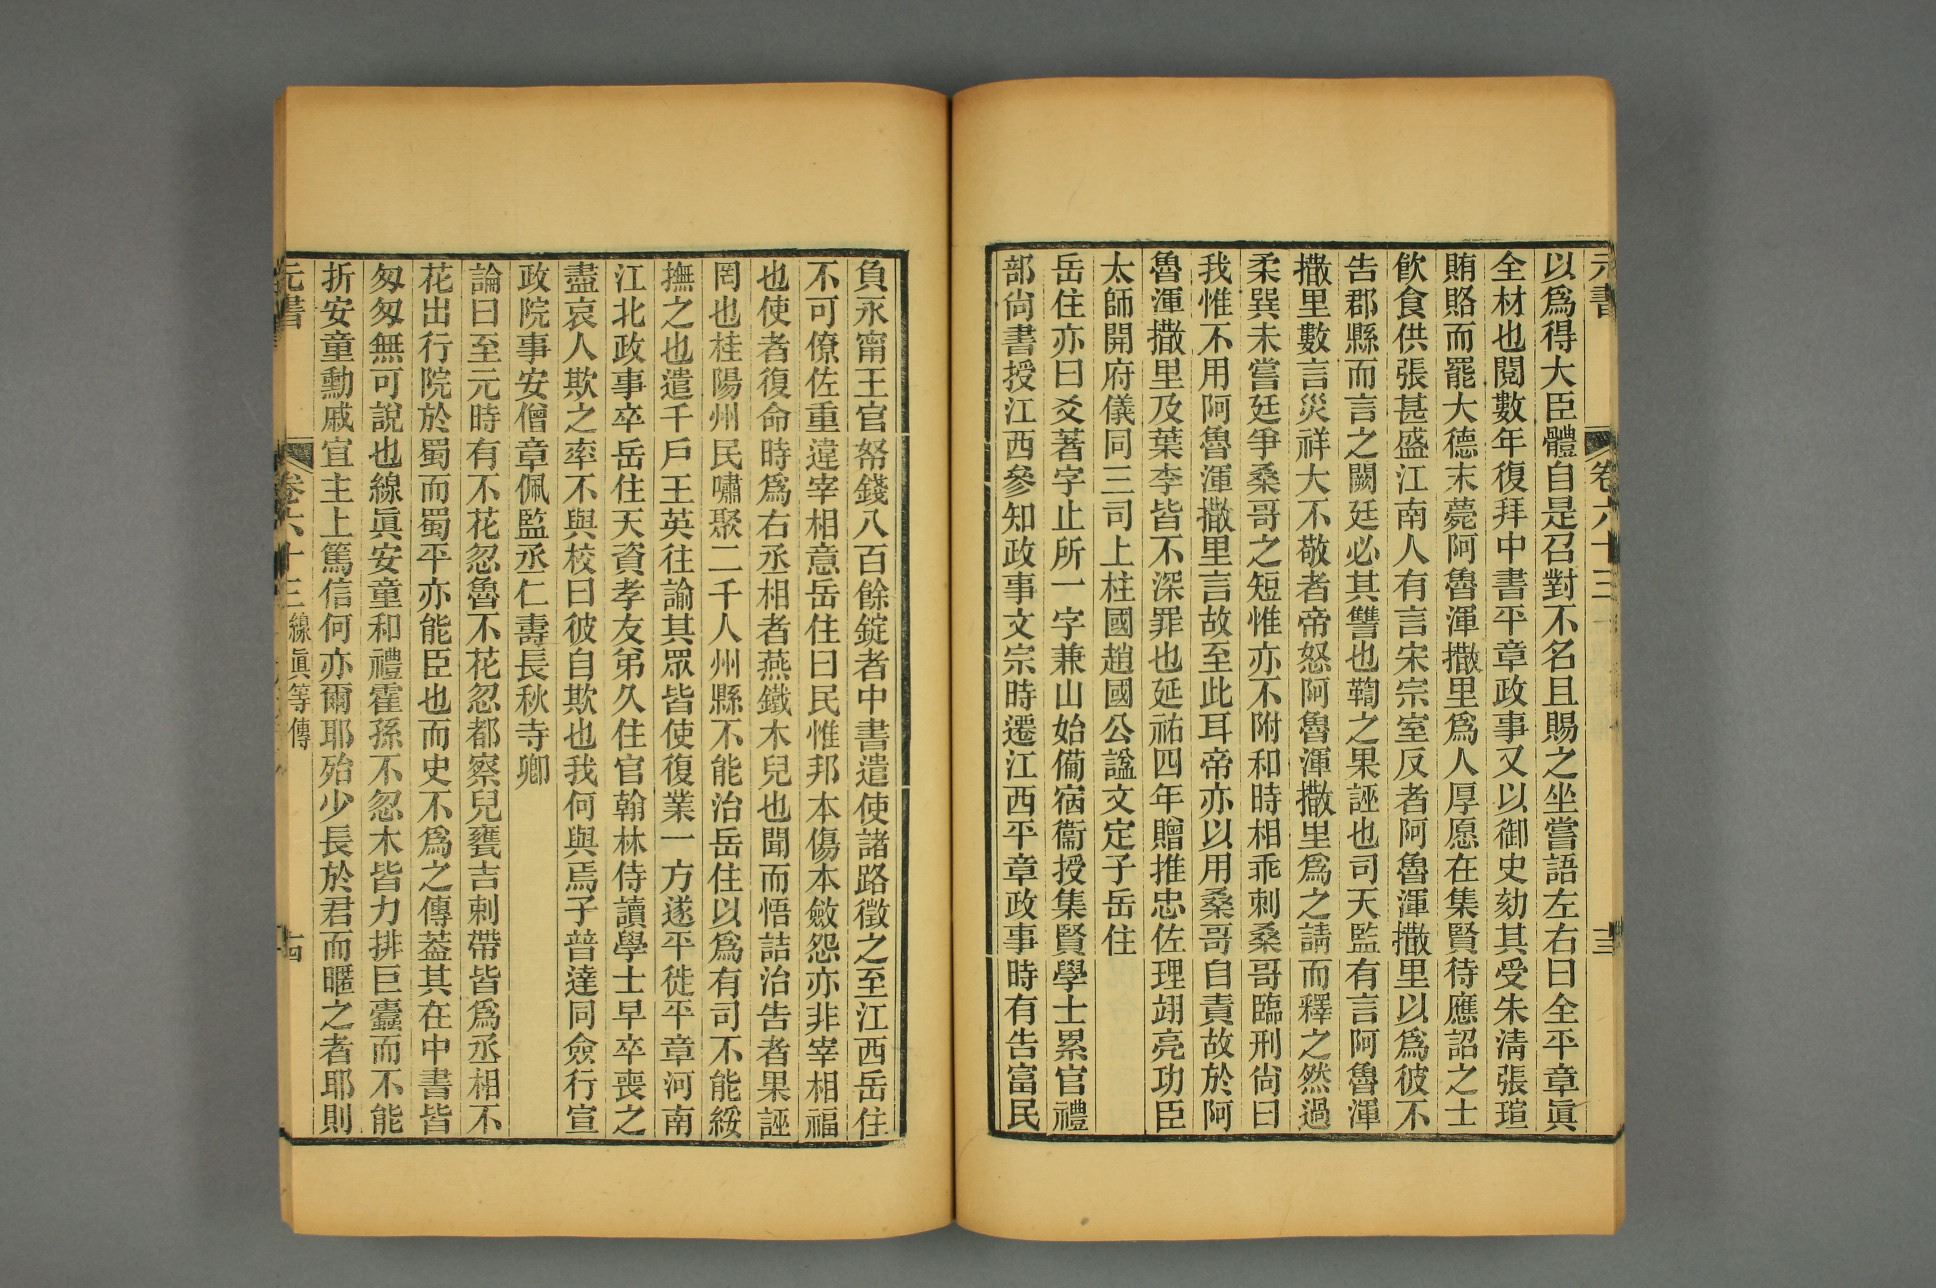 元書
卷六十三
十三
以爲得大臣體自是召對不名且賜之坐嘗語左右曰全平章眞
全材也閱數年復拜中書平章政事又以御史劾其受朱淸張瑄
賄賂而罷大德末薨阿魯渾撒里爲人厚愿在集賢待應詔之士
飮食供張甚盛江南人有言宋宗室反者阿魯渾撒里以爲彼不
告郡縣而言之闕廷必其讐也鞫之果誣也司天監有言阿魯渾
撒里數言災祥大不敬者帝怒阿魯渾撒里爲之請而釋之然過
柔巽未嘗廷爭桑哥之短惟亦不附和時相乖剌桑哥臨刑尙曰
我惟不用阿魯渾撒里言故至此耳帝亦以用桑哥自責故於阿
魯渾撒里及葉李皆不深罪也延祐四年贈推忠佐理翊亮功臣
太師開府儀同三司上柱國趙國公諡文定子岳住
岳住亦曰爻著字止所一字兼山始備宿衞授集賢學士累官禮
部尙書授江西參知政事文宗時遷江西平章政事時有告富民
負永甯王官帑錢八百餘錠者中書遣使諸路徵之至江西岳住
不可僚佐重違宰相意岳住曰民惟邦本傷本斂怨亦非宰相福
也使者復命時爲右丞相者燕鐵木兒也聞而悟詰治告者果誣
罔也桂陽州民嘯聚二千人州縣不能治岳住以爲有司不能綏
撫之也遣千戶王英往諭其眾皆使復業一方遂平徙平章河南
江北政事卒岳住天資孝友弟久住官翰林侍讀學士早卒喪之
盡哀人欺之率不與校曰彼自欺也我何與焉子普達同僉行宣
政院事安僧章佩監丞仁壽長秋寺卿
論曰至元時有不花忽魯不花忽都察兒甕吉剌帶皆爲丞相不
花出行院於蜀而蜀平亦能臣也而史不爲之傳蓋其在中書皆
匆匆無可說也線眞安童和禮霍孫不忽木皆力排巨蠹而不能
折安童勳戚宜主上篤信何亦爾耶殆少長於君而暱之者耶則
元書
卷六十三
線眞等傳
十四